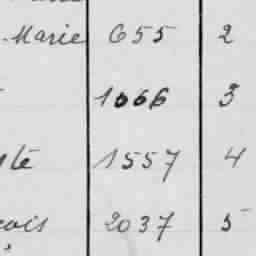 -Marie 655 2
1066 3
té 1557 4
çois 2037 5